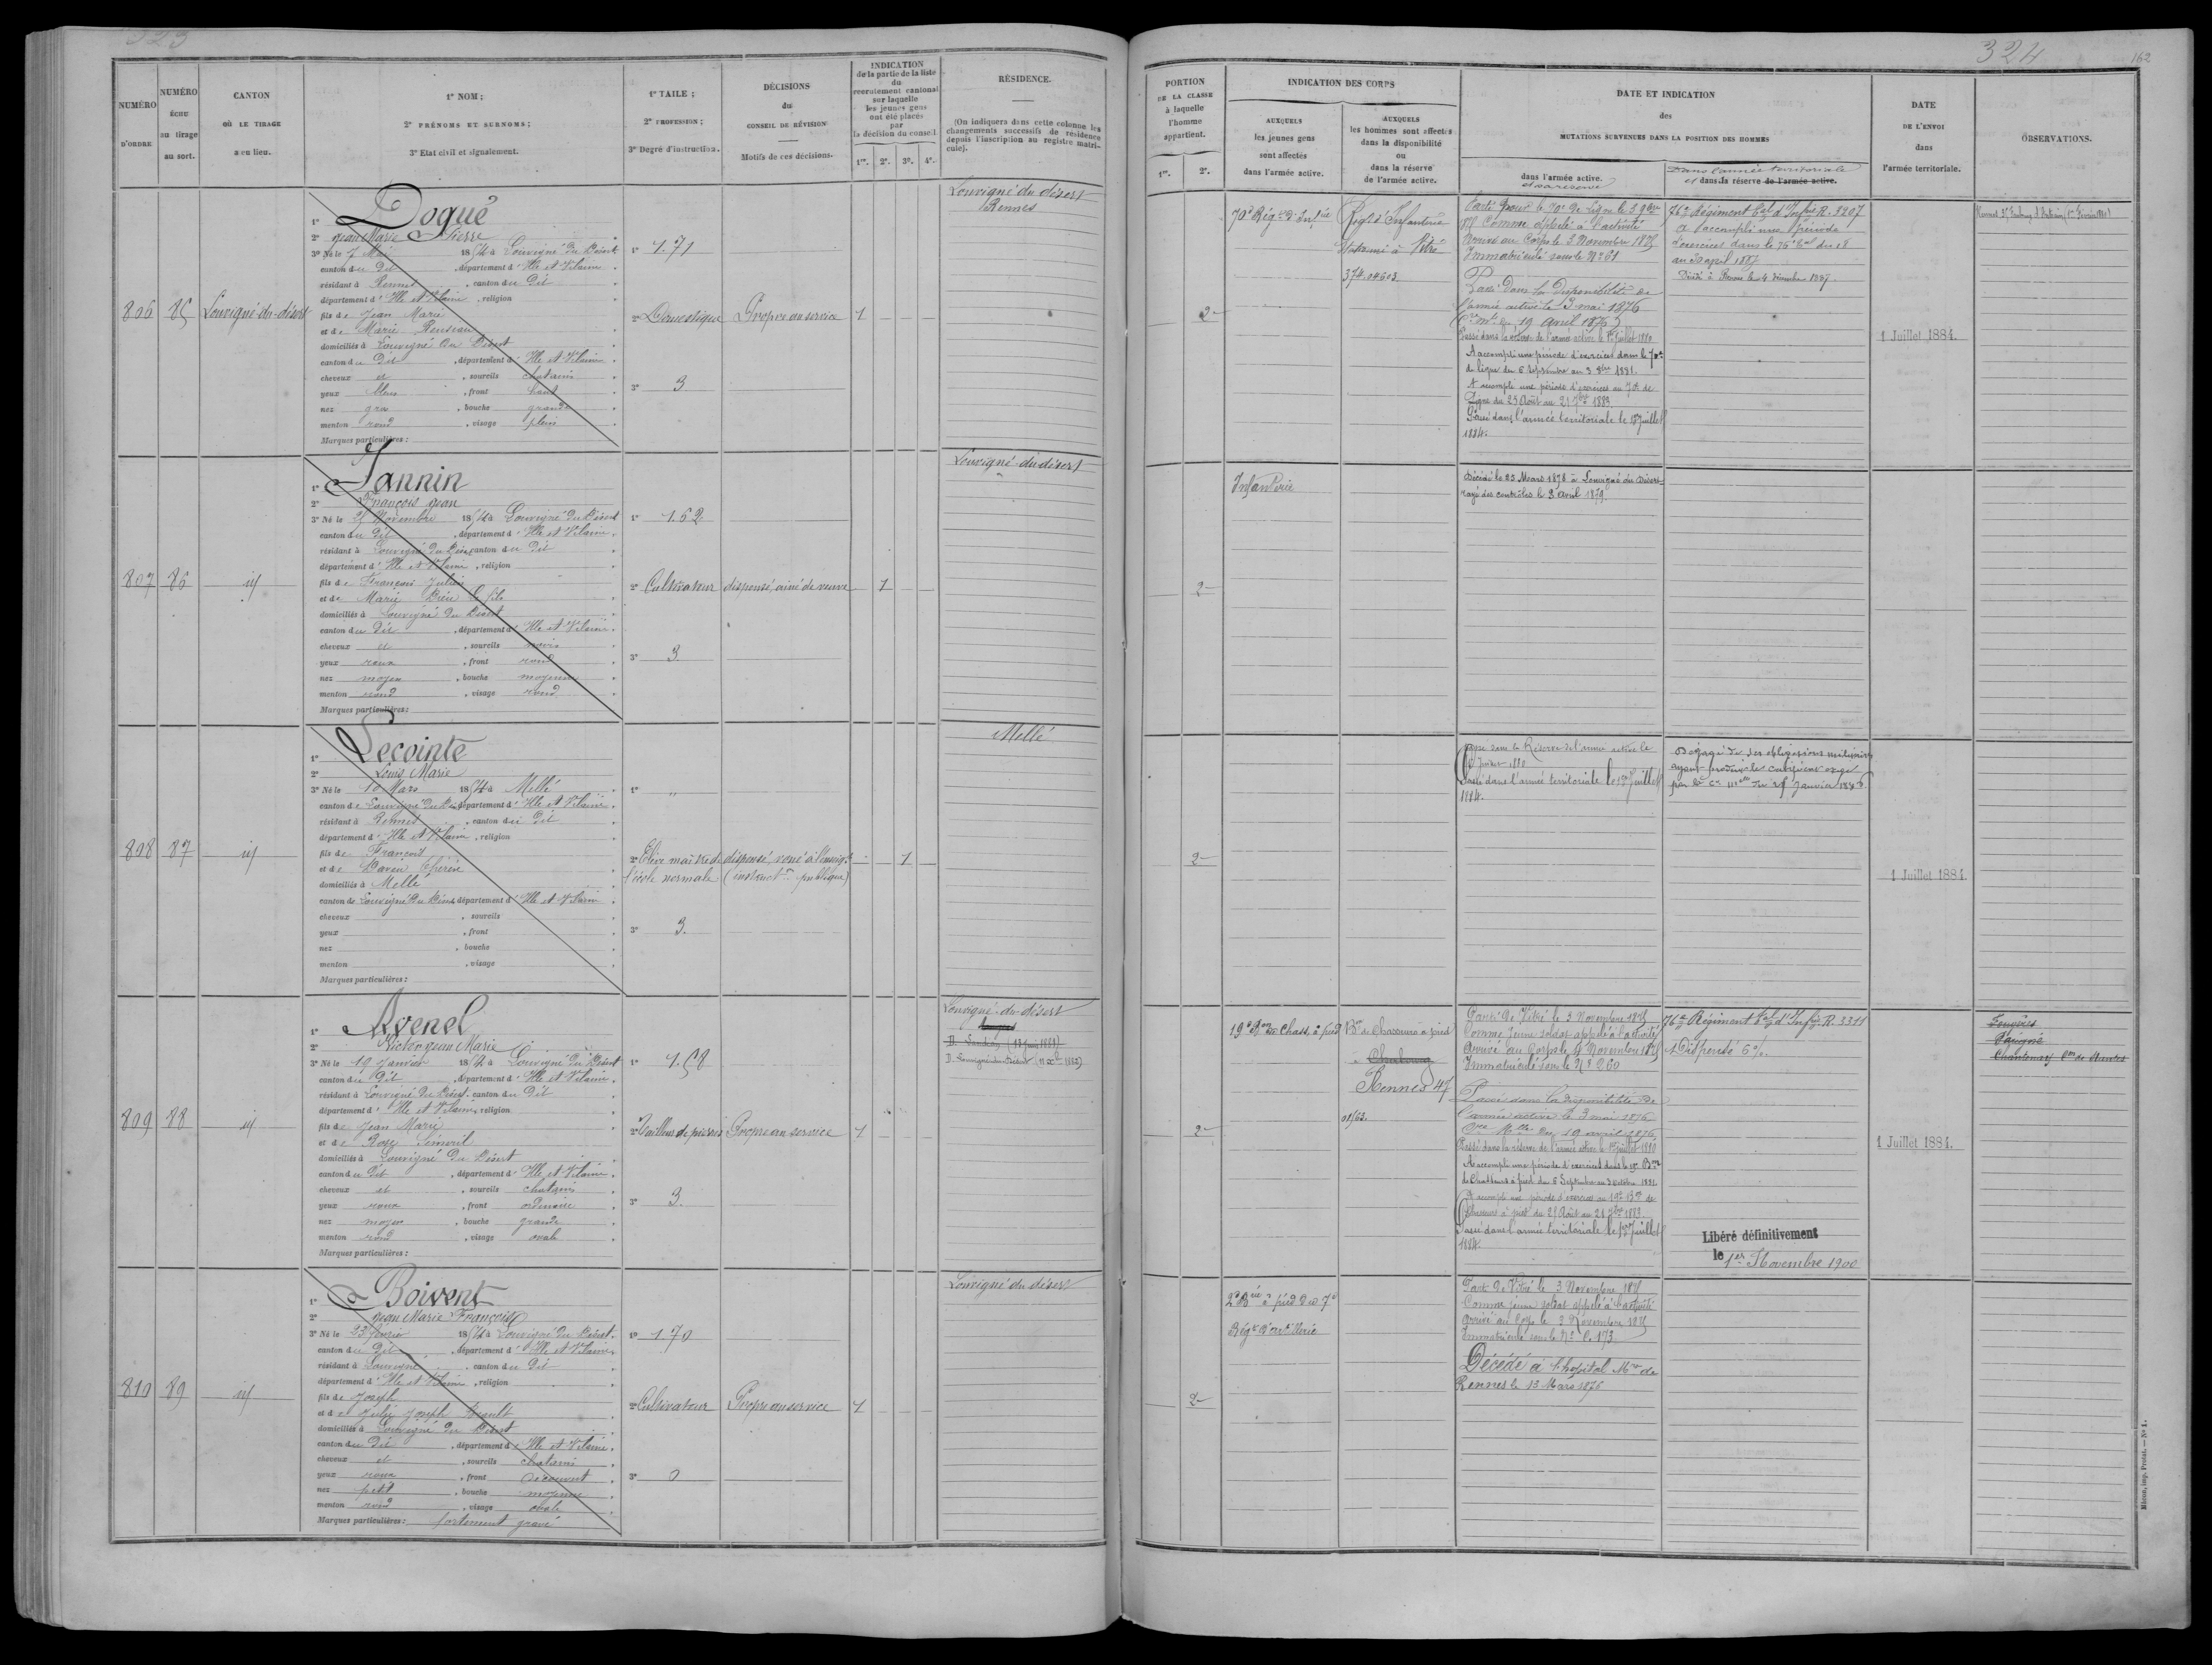 323
NUMÉRO D'ORDRE
NUMÉRO ÉCHU au tirage au sort.
CANTON OÙ LE TIRAGE a eu lieu.
1° NOM;
2° PRÉNOMS ET SURNOMS;
3° Etat civil et signalement.
1° TAILE;
2° PROFESSION;
3° Degré d'instruction.
DÉCISIONS
du
CONSEIL DE RÉVISION
Motifs de ces décisions.
INDICATION
de la partie de la liste
du
recrutement cantonal
sur laquelle
les jeunes gens
ont été placés
par
la décision du conseil
1re. 2e. 3e. 4e.
RÉSIDENCE.
(On indiquera dans cette colonne les
changements successifs de résidence
depuis l'inscription au registre matri-
cule).
806 85 Louvigné-du-désert
1° Dogué
2° Jean Marie Pierre
3° Né le 7 Mai 1854 à Louvigné du Désert
canton du Dit, département d'Ille et Vilaine
résidant à Rennes, canton du Dit
département d'Ille et Vilaine, religion
fils de Jean Marie
et de Marie
domiciliés à Louvigné du Désert
canton du Dit, département d'Ille et Vilaine
cheveux et, sourcils chatains
yeux bleus, front haut
nez gros, bouche grande
menton rond, visage plein
Marques particulières:
1° 1.71
2° Domestique Propre au service 1
3° 3
Louvigné du désert
Rennes
807 86 id
1° Jannin
2° François Jean
3° Né le 25 Novembre 1854 à Louvigné du Désert
canton du Dit, département d'Ille et Vilaine
résidant à Louvigné du Désert canton du Dit
département d'Ille et Vilaine, religion
fils de François Julien
et de Marie
domiciliés à Louvigné du Désert
canton du Dit, département d'Ille et Vilaine
cheveux et, sourcils noirs
yeux roux, front rond
nez moyen, bouche moyenne
menton rond, visage rond
Marques particulières:
1° 1.62
2° Cultivateur dispensé, ainé de veuve 1
3° 3
Louvigné-du-désert
808 87 id
1° Lecointe
2° Louis Marie
3° Né le 10 Mars 1854 à Mellé
canton de Louvigné du Désert département d'Ille et Vilaine
résidant à Rennes, canton du Dit
département d'Ille et Vilaine, religion
fils de François
et de Thérèse
domiciliés à Mellé
canton de Louvigné du Désert département d'Ille et Vilaine
cheveux, sourcils
yeux, front
nez, bouche
menton, visage
Marques particulières:
1° "
2° Elève maitre de dispensé, voué à l'enseigt 1
l'école normale (instructon publique)
3° 3.
Mellé
809 88 id
1° Avenel
2° Victor Jean Marie
3° Né le 19 Janvier 1854 à Louvigné du Désert
canton du Dit, département d'Ille et Vilaine
résidant à Louvigné du Désert. canton du Dit
département d'Ille et Vilaine, religion
fils de Jean Marie
et de Rose
domiciliés à Louvigné du Désert
canton du Dit, département d'Ille et Vilaine
cheveux et, sourcils chatains
yeux roux, front ordinaire
nez moyen, bouche grande
menton rond, visage ovale
Marques particulières:
1° 1.58
2° Tailleur de pierres Propre au service 1
3° 3.
Louvigné-du-désert
810 89 id
1° Boivent
2° Jean Marie François
3° Né le 23 février 1854 à Louvigné du Désert.
canton du Dit, département d'Ille et Vilaine
résidant à Louvigné, canton du Dit
département d'Ille et Vilaine, religion
fils de Joseph
et de Julie Joseph
domiciliés à Louvigné du Désert
canton du Dit, département d'Ille et Vilaine
cheveux et, sourcils chatains
yeux roux, front découvert
nez petit, bouche moyenne
menton rond, visage ovale
Marques particulières: fortement gravé
1° 1.70
2° Cultivateur Propre au service 1
3° 0
Louvigné du désert
324
162
PORTION
DE LA CLASSE
à laquelle
l'homme
appartient.
1re. 2e.
INDICATION DES CORPS
AUXQUELS
les jeunes gens
sont affectés
dans l'armée active.
AUXQUELS
les hommes sont affectés
dans la disponibilité
ou
dans la réserve
de l'armée active.
DATE ET INDICATION
des
MUTATIONS SURVENUES DANS LA POSITION DES HOMMES
dans l'armée active.
et sa réserve
Dans l'armée territoriale
et dans sa réserve de l'armée active.
DATE
DE L'ENVOI
dans
l'armée territoriale.
OBSERVATIONS.
2e
70e Régt d'Infrie
Régt d'Infanterie
stationné à Vitré
Parti pour le 70e de Ligne le 3 9bre
1875 Comme appelé à l'activité
Arrivé au Corps le 3 Novembre 1875
Immatriculé sous le No 61
Passé dans la disponibilité de
l'armée active le 3 mai 1876
(Cre mlle du 19 avril 1876)
Passé dans la réserve de l'armée active le 1er Juillet 1880
A accompli une période d'exercices dans le 70e
de ligne du 5 septembre au 3 8bre 1881.
A accompli une période d'exercices au 70e de
Ligne du 25 Août au 21 7bre 1883
Passé dans l'armée territoriale le 1er Juillet
1884.
76e Régiment tal d'Infrie R. 3207
A accompli une période
d'exercices dans le 76e tal du 18
au 30 avril 1887
Décédé à Rennes le 4 décembre 1887.
1 Juillet 1884.
2e
Infanterie
Décédé le 25 Mars 1878 à Louvigné du Désert
rayé des contrôles le 3 avril 1879.
2e
Passé dans la Réserve de l'armée active le
1er Juillet 1880
Passé dans l'armée territoriale le 1er Juillet
1884.
Dégagé de ses obligations militaires
ayant produit le certificat exigé
1 Juillet 1884.
2e
19e Bon de Chass. à pied
Bon de Chasseurs à pied
à Cherbourg
Rennes 47
01/63.
Parti de Vitré le 3 Novembre 1875
Comme jeune soldat appelé à l'activité
Arrivé au Corps le 4 Novembre 1875
Immatriculé sous le No 260
Passé dans la disponibilité de
l'armée active le 3 mai 1876
Cre Mlle du 19 avril 1876
Passé dans la réserve de l'armée active le 1er Juillet 1880
A accompli une période d'exercices dans le 19e Bon
de Chasseurs à pied du 5 Septembre au 3 octobre 1881.
A accompli une période d'exercices au 19e Bon de
Chasseurs à pied du 25 Août au 21 7bre 1883.
Passé dans l'armée territoriale le 1er Juillet
1884.
76e Régiment tal d'Infrie R. 3311
Dispensé 6%.
Libéré définitivement
le 1er Novembre 1900
1 Juillet 1884.
Fougères
2e
2e Brie à pied du 7e
Régt d'artillerie
Parti de Vitré le 3 Novembre 1875
Comme jeune soldat appelé à l'activité
Arrivé au Corps le 3 Novembre 1875
Immatriculé sous le No 173
Décédé à l'hôpital Mre de
Rennes le 13 Mars 1876
Mâcon, imp. Protat. — No 1.